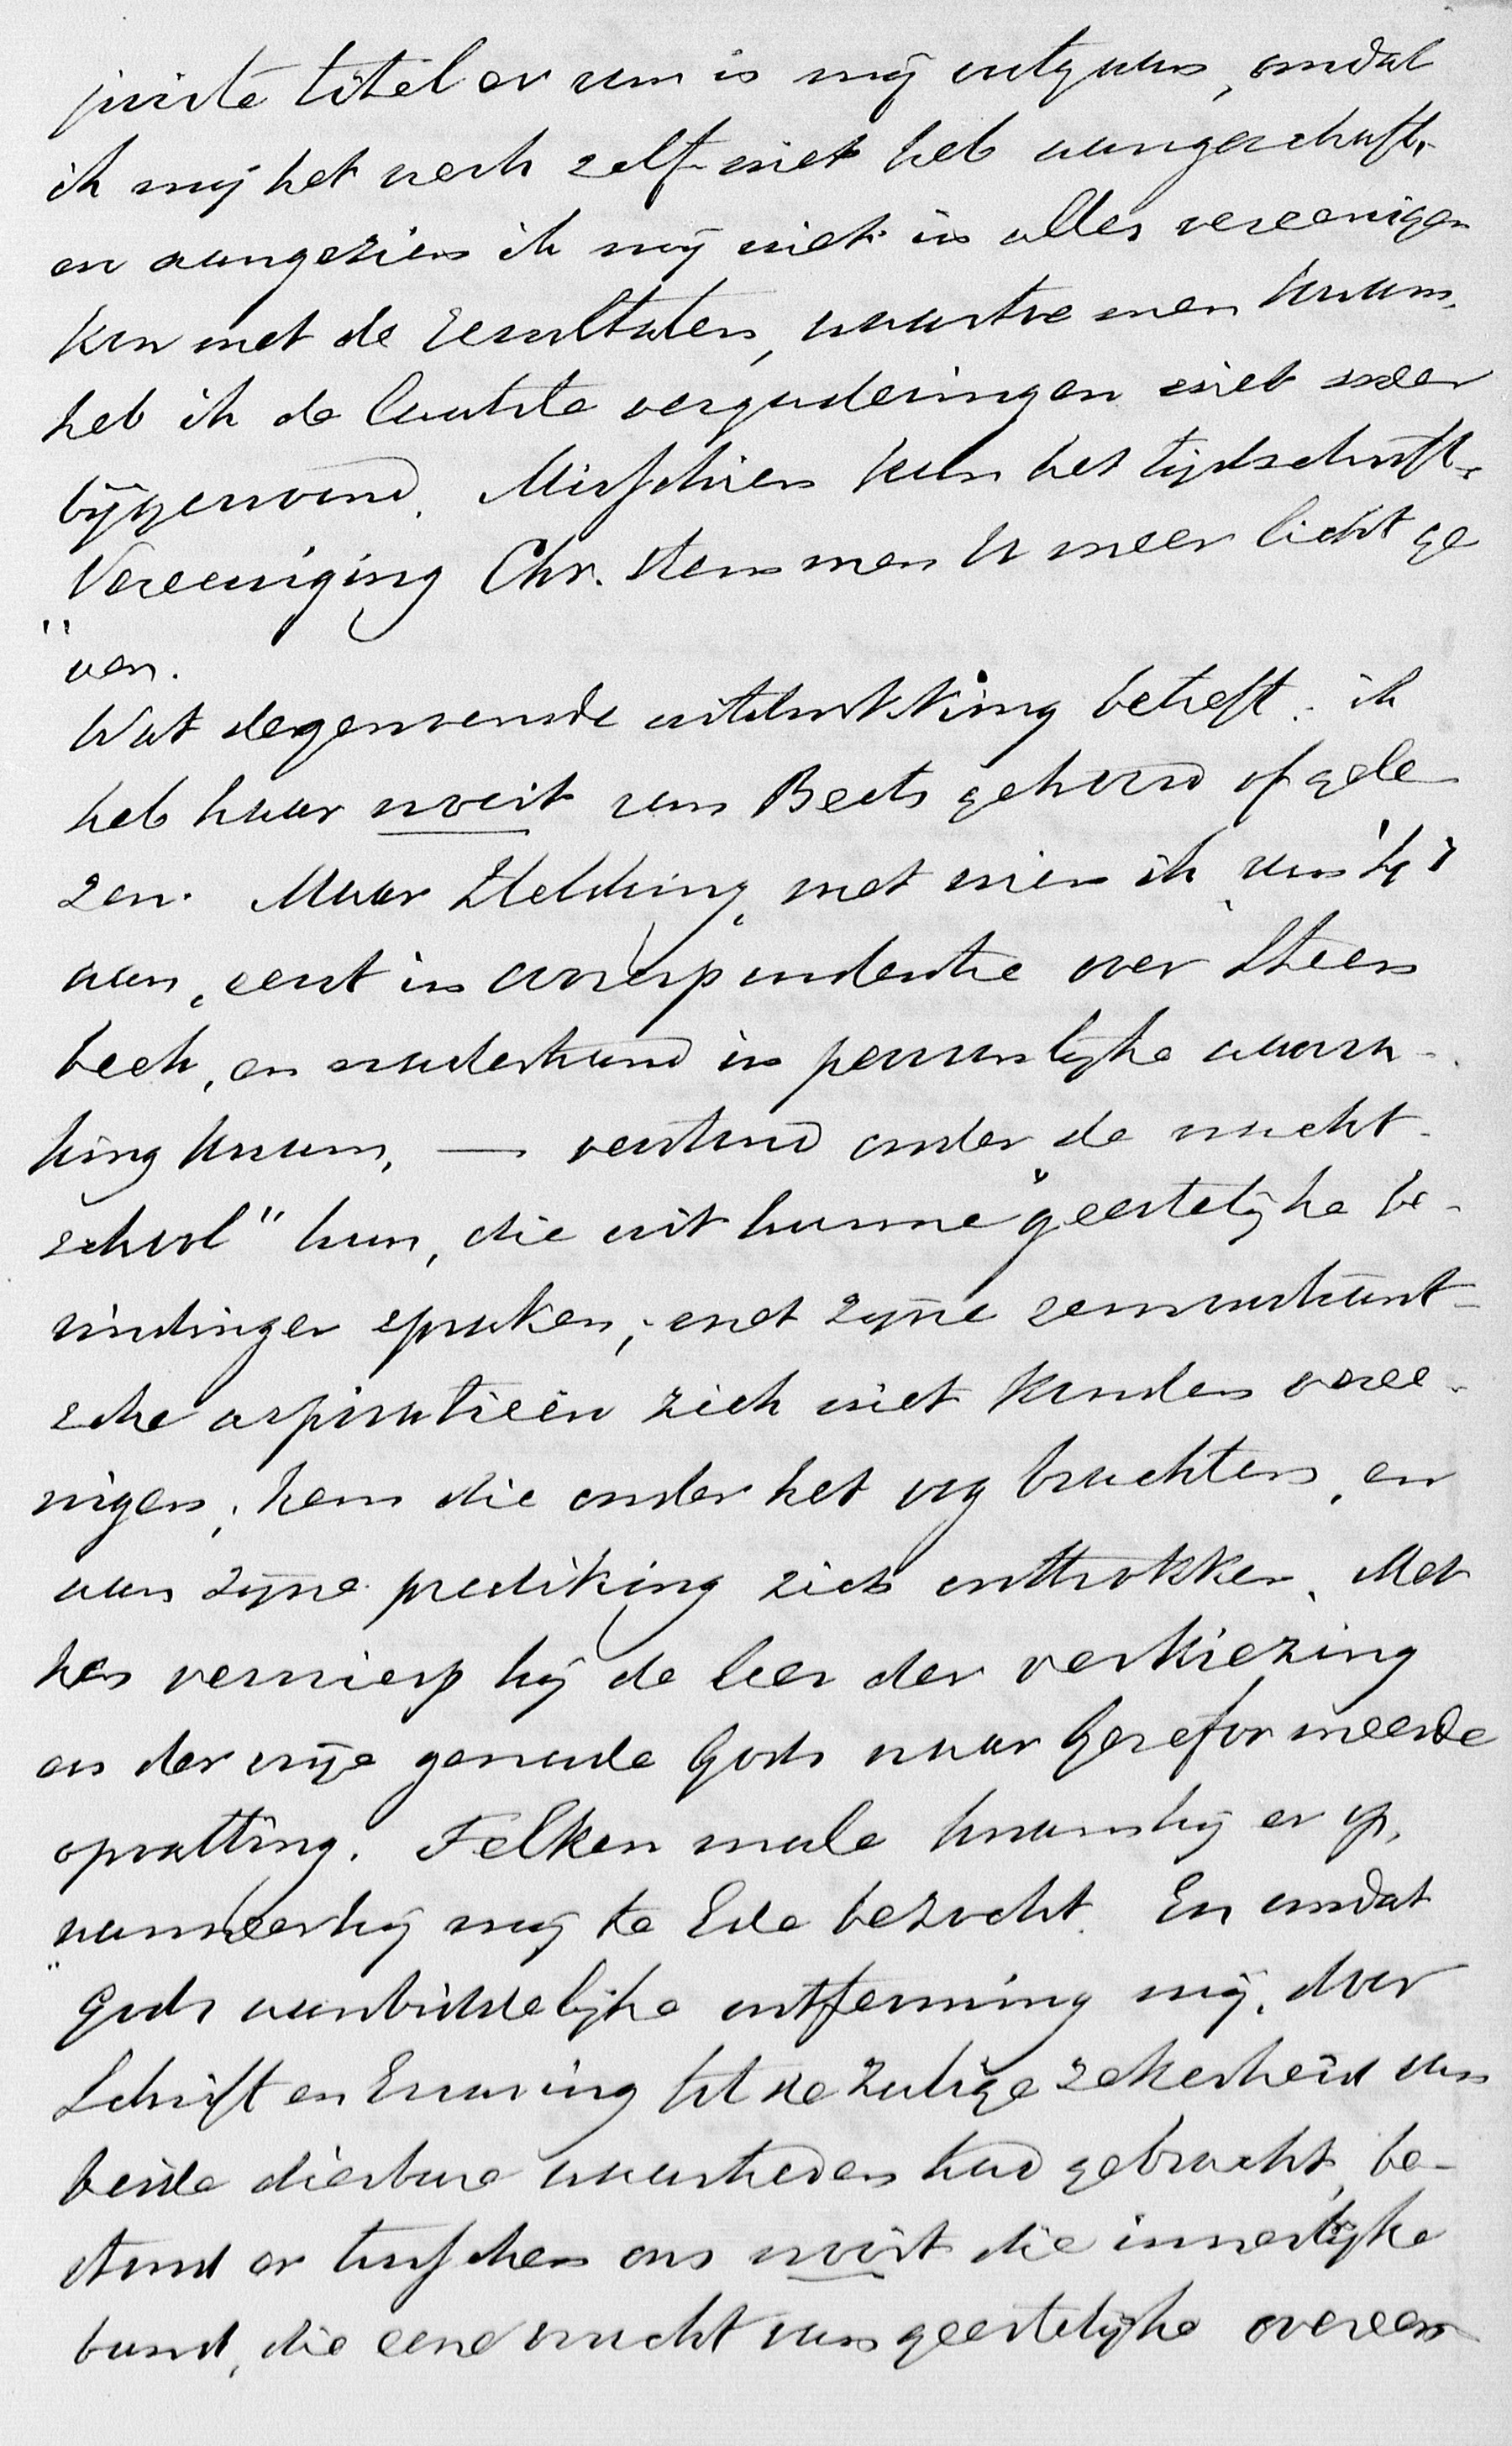 juiste titel er van is mij ontgaan, omdat
ik mij het werk zelf niet heb aangeschaft.
en aangezien ik mij niet in alles vereenigen
kon met de resultaten, waartoe men kwam,
heb ik de laatste vergaderingen niet meer
bijgewoond. Misschien kan het tijdschrift
Vereeniging Chr. Stemmen U meer licht ge
"ven.
Wat degenoemde uitdrukking betreft: ik
heb haar nooit van Beets gehoord of gele
zen. Maar Heldring, met wien ik van '47
aan, eerst in correspondentie over Steen
beek, en naderhand in persoonlijke aanra-
king kwam, — verstond onder de nacht-
school" hen, die uit hunne "geestelijke be-
vindingen spraken; met zijne
sche aspiratieën zich niet konden veree-
nigen; hem die onder het oog brachten, en
aan zijne prediking zich onttrokken. Met
hen verwierp hij de leer der verkiezing
en der vrije genade Gods naar Gereformeerde
opvatting. Telken male kwam hij er op,
wanneer hij mij te Ede bezocht. En omdat
"Gods aanbiddelijke ontferming mij, door
Schrift en Ervaring tot de zalige zekerheid van
beide dierbare waarheden had gebracht, be-
stond er tusschen ons nooit die innerlijke
band, die eene vrucht van geestelijke overeen